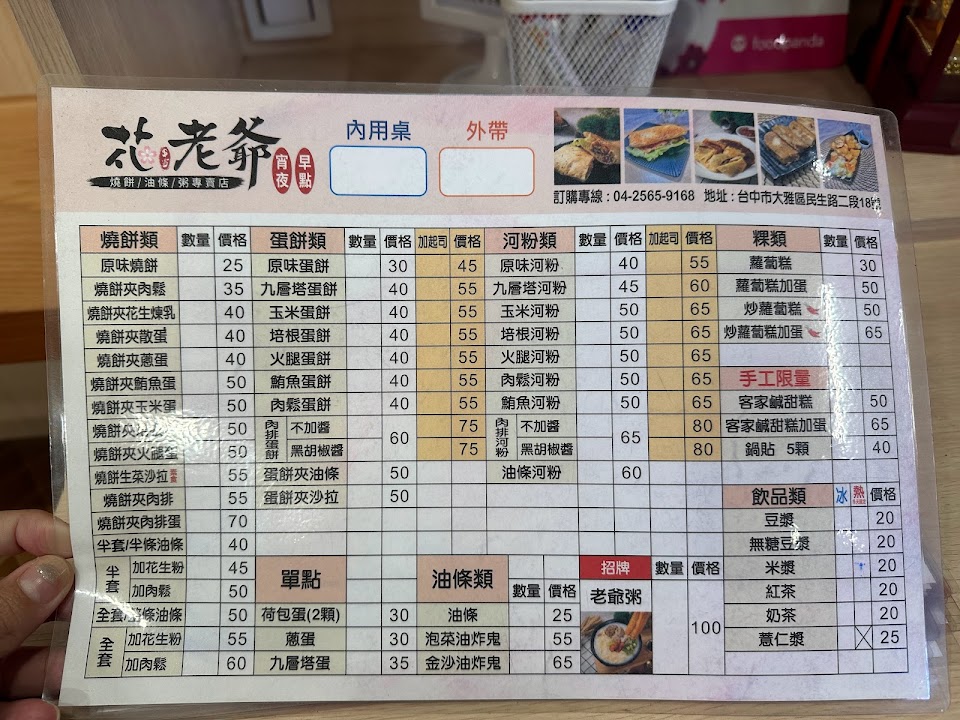 foodpanda
花老爺
燒餅/油條/粥專賣店
宵夜 早點
內用桌 外帶
訂購專線:04-2565-9168 地址:台中市大雅區民生路二段18號
燒餅類 數量 價格 蛋餅類 數量 價格 加起司 價格 河粉類 數量 價格 加起司 價格 粿類 數量 價格
原味燒餅 25 原味蛋餅 30 45 原味河粉 40 55 蘿蔔糕 30
燒餅夾肉鬆 35 九層塔蛋餅 40 55 九層塔河粉 45 60 蘿蔔糕加蛋 50
燒餅夾花生煉乳 40 玉米蛋餅 40 55 玉米河粉 50 65 炒蘿蔔糕 50
燒餅夾散蛋 40 培根蛋餅 40 55 培根河粉 50 65 炒蘿蔔糕加蛋 65
燒餅夾蔥蛋 40 火腿蛋餅 40 55 火腿河粉 50 65
燒餅夾鮪魚蛋 50 鮪魚蛋餅 40 55 肉鬆河粉 50 65 手工限量
燒餅夾玉米蛋 50 肉鬆蛋餅 40 55 鮪魚河粉 50 65 客家鹹甜糕 50
燒餅夾 50 肉排蛋餅 不加醬 60 75 肉排河粉 不加醬 65 80 客家鹹甜糕加蛋 65
燒餅夾火腿蛋 50 黑胡椒醬 75 黑胡椒醬 80 鍋貼 5顆 40
燒餅生菜沙拉 55 蛋餅夾油條 50 油條河粉 60
燒餅夾肉排 55 蛋餅夾沙拉 50 飲品類 冰 熱 價格
燒餅夾肉排蛋 70 豆漿 20
半套/半條油條 40 無糖豆漿 20
半套 加花生粉 45 單點 油條類 數量 價格 招牌 數量 價格 米漿 20
加肉鬆 50 老爺粥 100 紅茶 20
全套/整條油條 50 荷包蛋(2顆) 30 油條 25 奶茶 20
全套 加花生粉 55 蔥蛋 30 泡菜油炸鬼 55 薏仁漿 25
加肉鬆 60 九層塔蛋 35 金沙油炸鬼 65